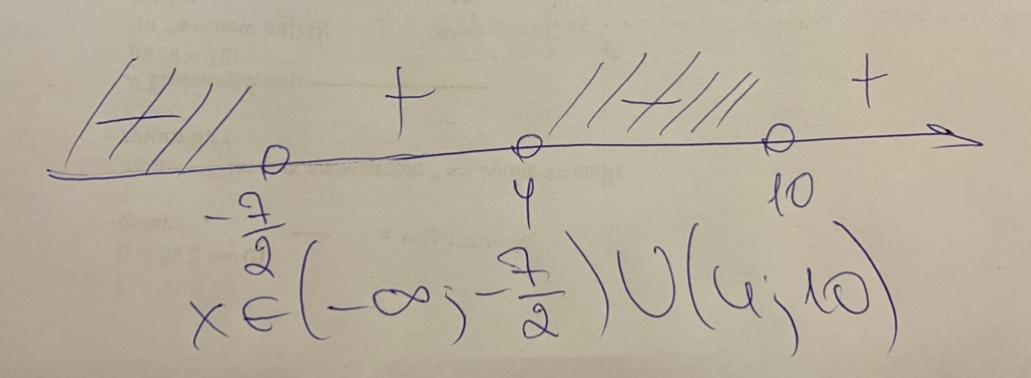 - + - +
-7/2 4 10
x ∈ (-∞; -7/2) ∪ (4; 10)